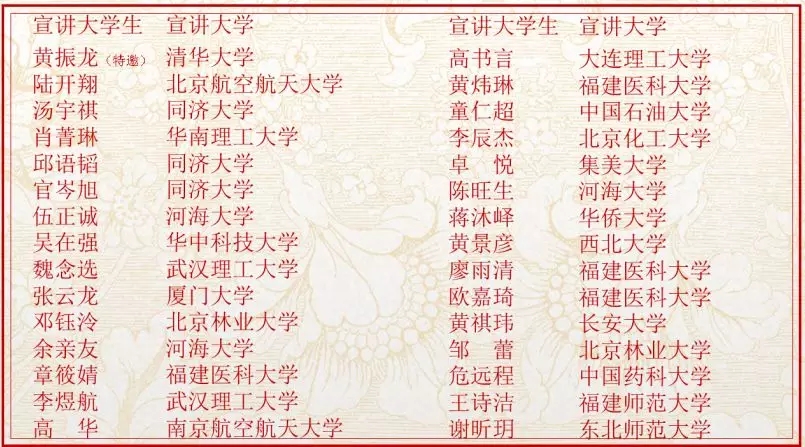 宣讲大学生 宣讲大学 宣讲大学生 宣讲大学
黄振龙（特邀） 清华大学 高书言 大连理工大学
陆开翔 北京航空航天大学 黄炜琳 福建医科大学
汤宇祺 同济大学 童仁超 中国石油大学
肖菁琳 华南理工大学 李辰杰 北京化工大学
邱语韬 同济大学 卓 悦 集美大学
官岑旭 同济大学 陈旺生 河海大学
伍正诚 河海大学 蒋沐峄 华侨大学
吴在强 华中科技大学 黄景彦 西北大学
魏念选 武汉理工大学 廖雨清 福建医科大学
张云龙 厦门大学 欧嘉琦 福建医科大学
邓钰泠 北京林业大学 黄祺玮 长安大学
余亲友 河海大学 邹 蕾 北京林业大学
章筱婧 福建医科大学 危远程 中国药科大学
李煜航 武汉理工大学 王诗洁 福建师范大学
高 华 南京航空航天大学 谢昕玥 东北师范大学